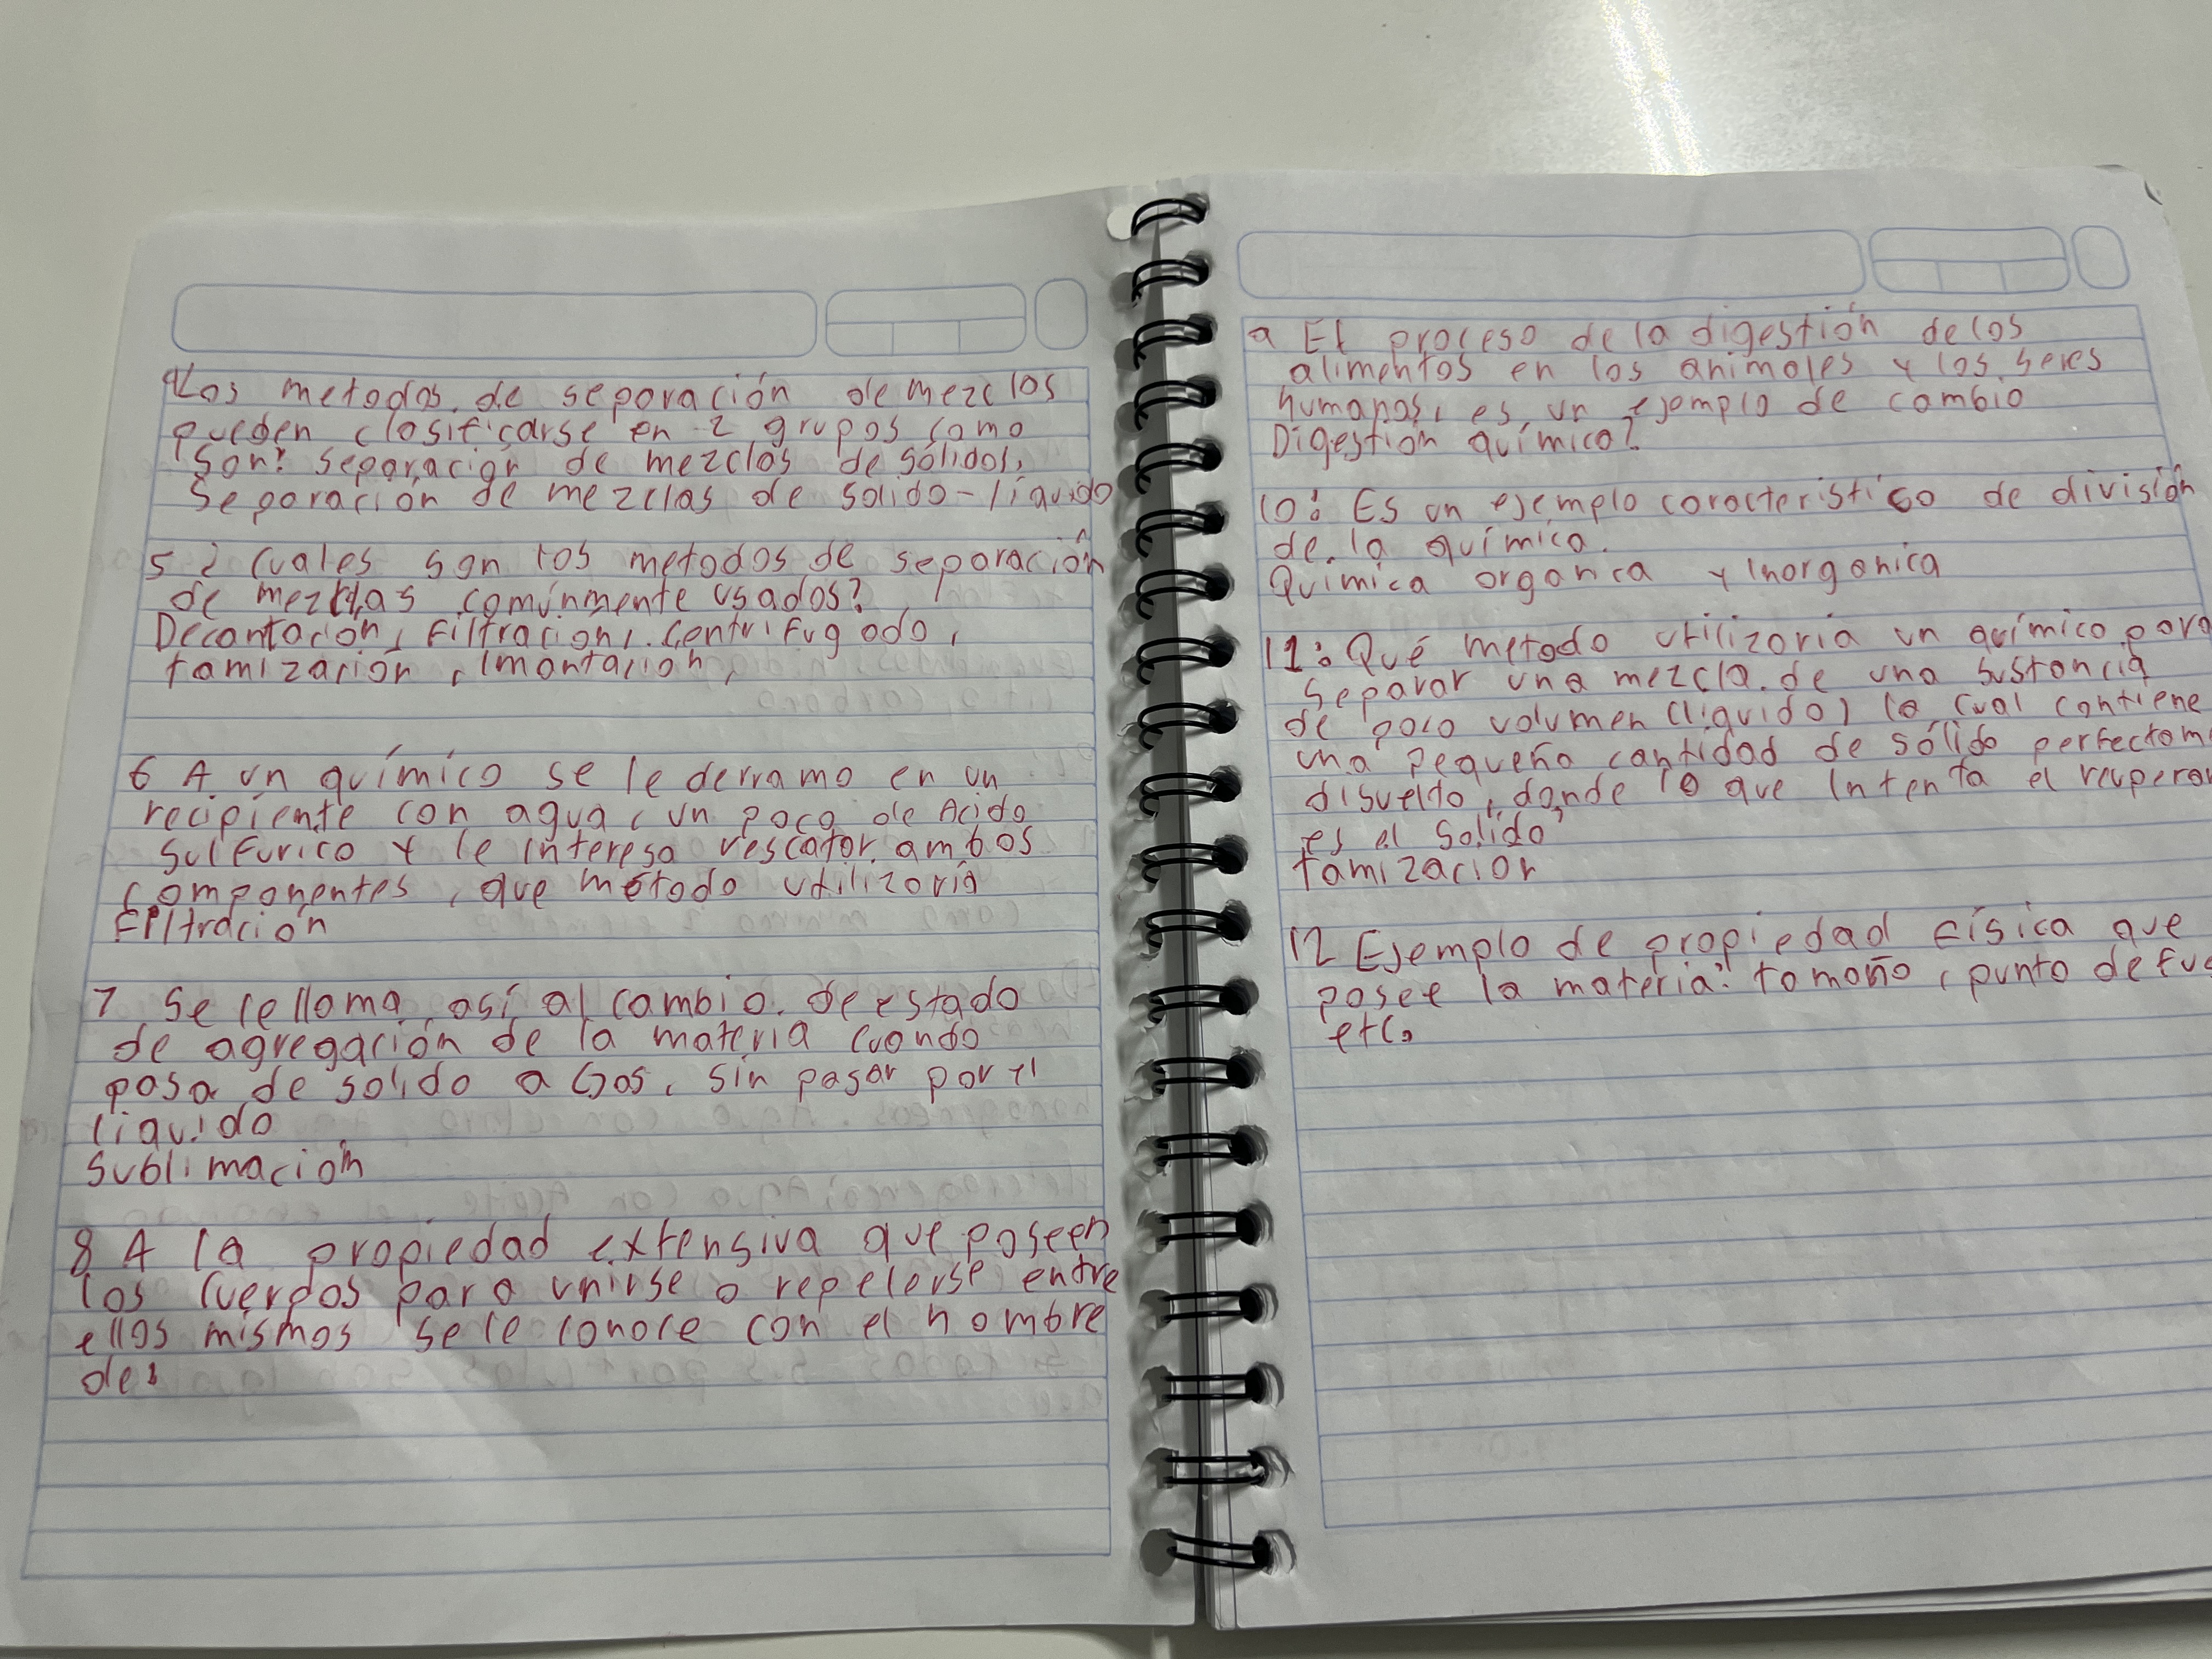 4 Los metodos de separación de mezclas
pueden clasificarse en 2 grupos como
son: separación de mezclas de solidos,
separación de mezclas de solido-liquido
5 ¿Cuales son los metodos de separación
de mezclas comúnmente usados?
Decantación, Filtracion, Centrifugado,
tamización, Imantación,
6 A un químico se le derramo en un
recipiente con agua, un poco de Acido
sulfurico y le interesa rescatar ambos
componentes, que método utilizaría
Filtración
7 Se le llama así al cambio de estado
de agregación de la materia cuando
pasa de solido a Gas, sin pasar por el
liquido
Sublimación
8 A la propiedad extensiva que poseen
los cuerpos para unirse o repelerse entre
ellos mismos se le conoce con el nombre
de:
9 El proceso de la digestión de los
alimentos en los animales y los seres
humanos, es un ejemplo de cambio
Digestión química?
10: Es un ejemplo caracteristico de división
de la química.
Química organica y Inorganica
11: Qué metodo utilizaría un químico para
separar una mezcla de una sustancia
de poco volumen (liquido) la cual contiene
una pequeña cantidad de sólido perfectam
disuelto, donde lo que Intenta el recuperar
es el solido?
tamización
12 Ejemplo de propiedad física que
posee la materia: tamaño, punto de fus
etc.